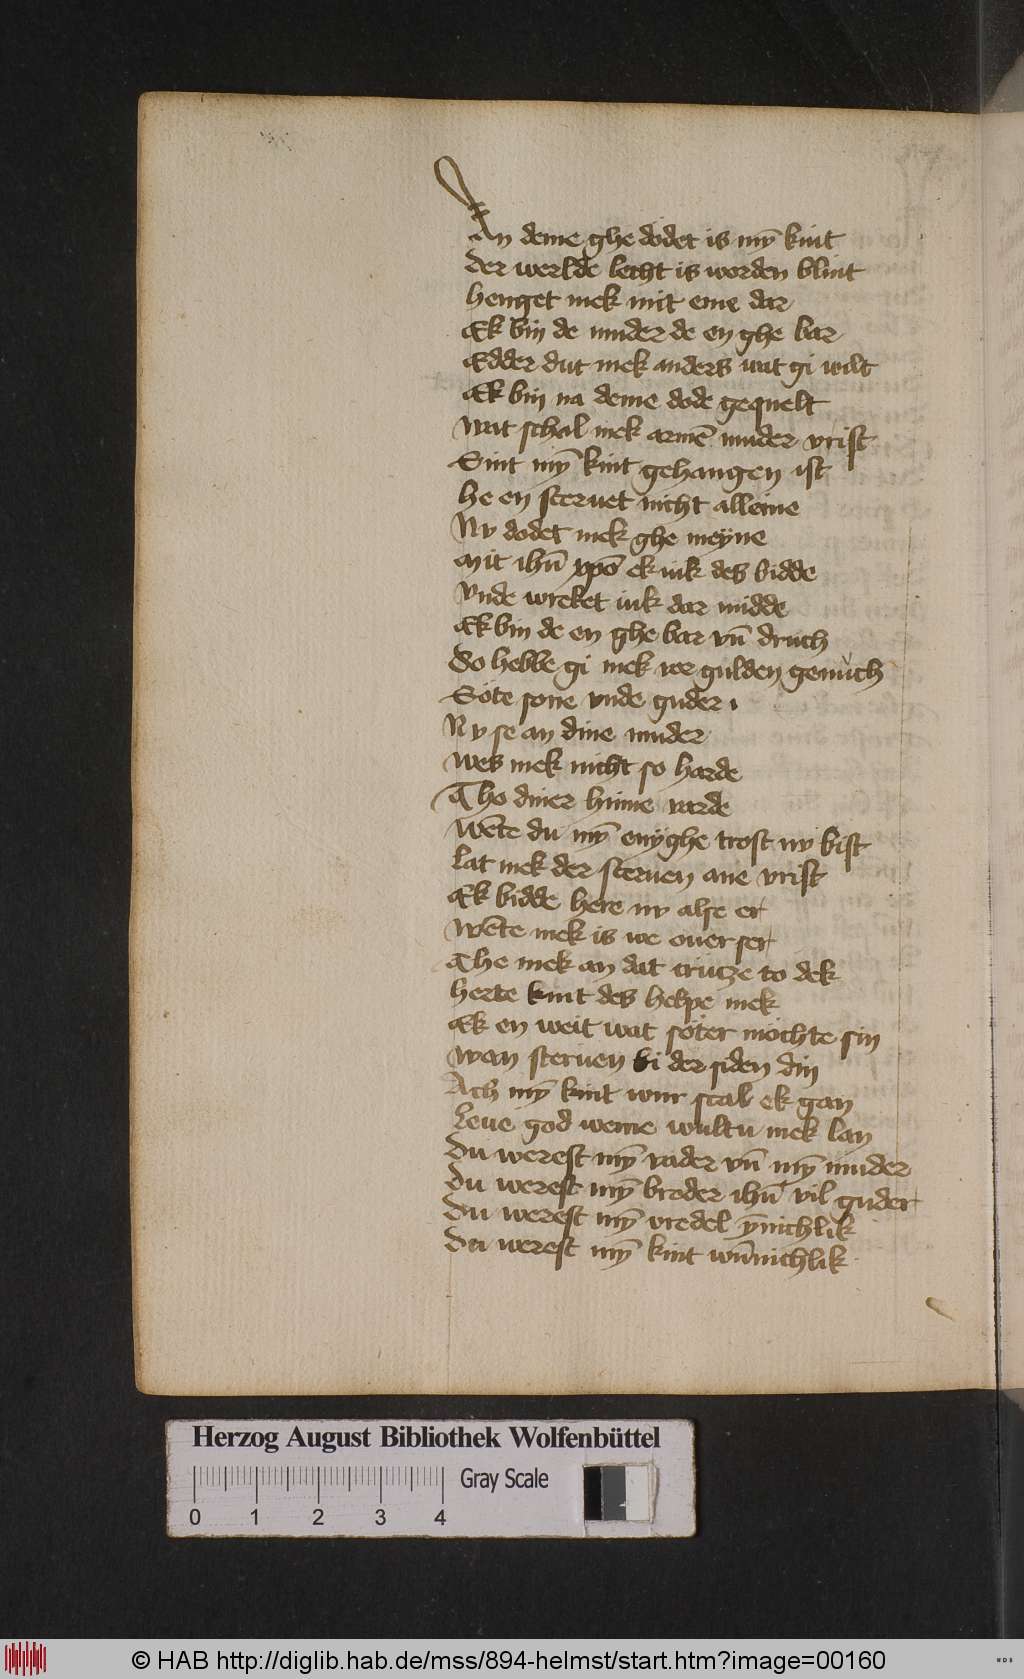 An deme ghe dodet is mȳ kint
der werlde lecht is worden blint
henget mek mit eme dar
Ek bin de muder de en ghe bar
Edder dut mek anders wat gi wilt
Ek bin na deme dode gequelt
wat schal mek armē muder vrist
Sint mȳ kint gehangen ist
he en steruet nicht alleine
Nv dodet mek ghe meyne
mit ihū xpō ek iuk des bidde
vnde wreket iuk dar midde
Ek bin de en ghe bar vn̄ druch
So hebbe gi mek vor gulden genůch
Söte sone vnde guder
Nv se an dine muder
wes mek nicht so harde
Tho diner hinne varde
wēte du mȳ enyghe trost nv bist
lat mek der steruen ane vrist
Ek bidde here nv alse er
wēte mek is we ouer ser
The mek an dat crütze to dek
herte kint des helpe mek
Ek en weit wat söter möchte sin
wan steruen bi der siden din
Ach mȳ kint wur scal ek gan
Leue god weme wultu mek lan
Du werest mȳ vader vn̄ mȳ muder
du werest mȳ broder ihū vil guder
Du werest mȳ vredel ȳnichlik
Du werest mȳ kint wūnichlik
Herzog August Bibliothek Wolfenbüttel
Gray Scale
0 1 2 3 4
© HAB http://diglib.hab.de/mss/894-helmst/start.htm?image=00160